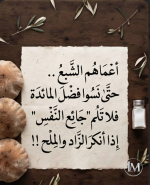 أعْمَاهُم الشَّبَعُ ..
حتىٰ نَسُوا فضلَ المائدَة
فلا تَلُم "جَائِع النَّفْسِ"
إذا أنكرَ الزَّاد والمِلْح !!